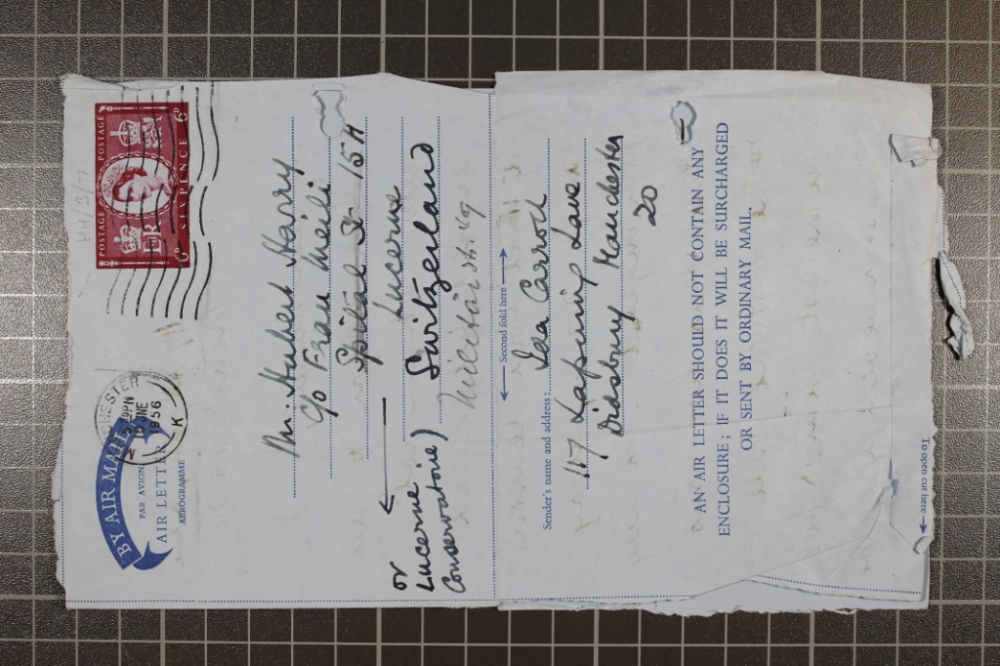 HH/3/7
POSTAGE POSTAGE
E R
6D SIXPENCE 6D
BY AIR MAIL
PAR AVION
AIR LETTER
AEROGRAMME
CHESTER
PM
JNE
1956
K
Mr. Hubert Harry
c/o Frau Meili
Spital St 15 A
Lucerne
or
Lucerne
Conservatorie)
Switzerland
Militärstr. 49
← Second fold here →
Sender's name and address:
Ida Carroll
117 Lapwing Lane
Didsbury Manchester
20
AN AIR LETTER SHOULD NOT CONTAIN ANY
ENCLOSURE; IF IT DOES IT WILL BE SURCHARGED
OR SENT BY ORDINARY MAIL.
To open cut here